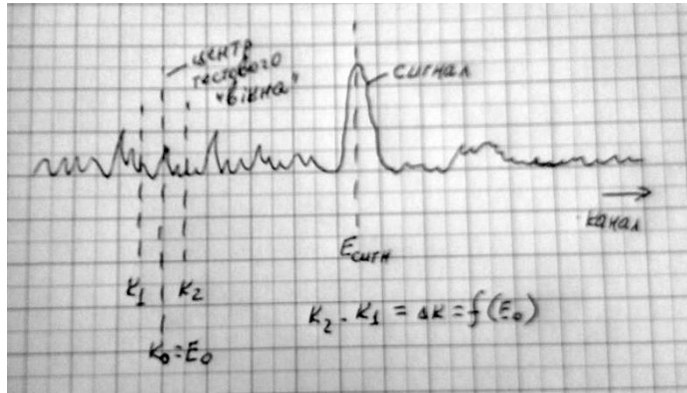 центр
тестового
"вікна"
сигнал
канал
Eсигн
K₁
K₂
K₀=E₀
K₂ - K₁ = ΔK = f(E₀)